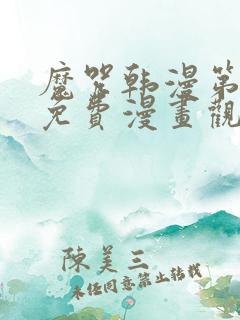 魔咒韩漫第
免費漫畫觀
陳美三
未经同意禁止转载